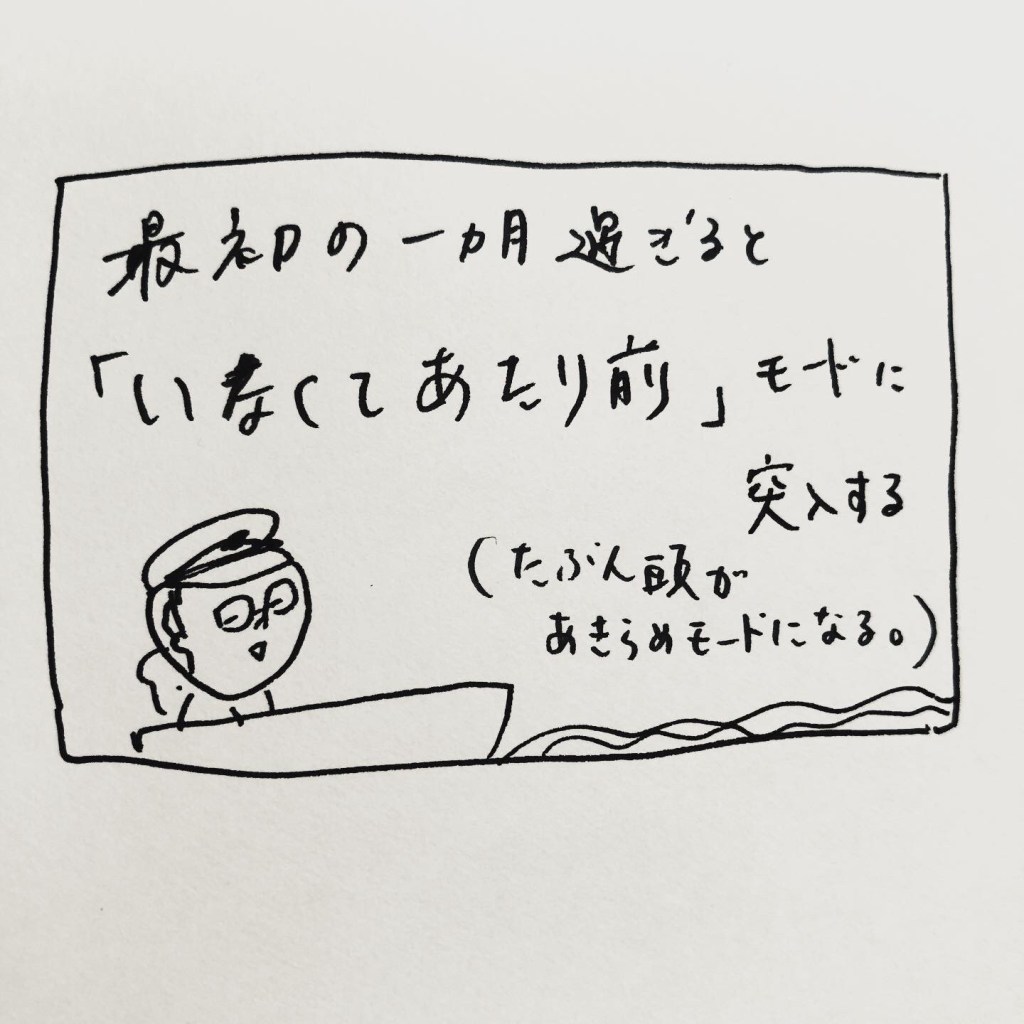 最初の一ヵ月過ぎると
「いなくてあたり前」モードに
突入する
(たぶん頭が
あきらめモードになる。)